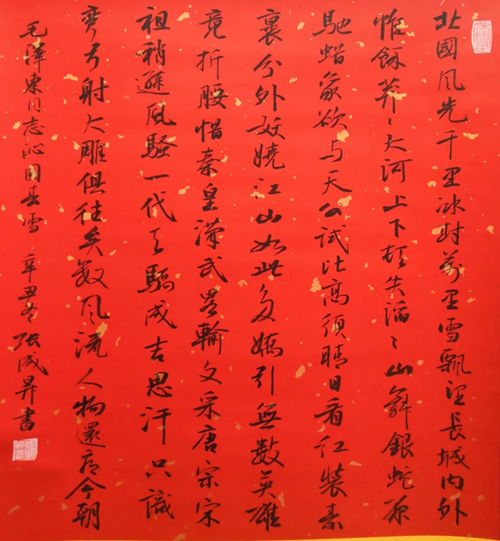 北國风光千里冰封萬里雪飄望長城内外
惟餘莽〻大河上下頓失滔〻山舞銀蛇原
馳蜡象欲与天公試比高須晴日看红装素
裹分外妖嬈江山如此多嬌引無數英雄
竟折腰惜秦皇漢武畧輸文采唐宗宋
祖稍遜风騷一代天驕成吉思汗只識
彎弓射大雕俱往矣數风流人物還看今朝
毛澤東同志沁园春雪 辛丑冬 張成昇書